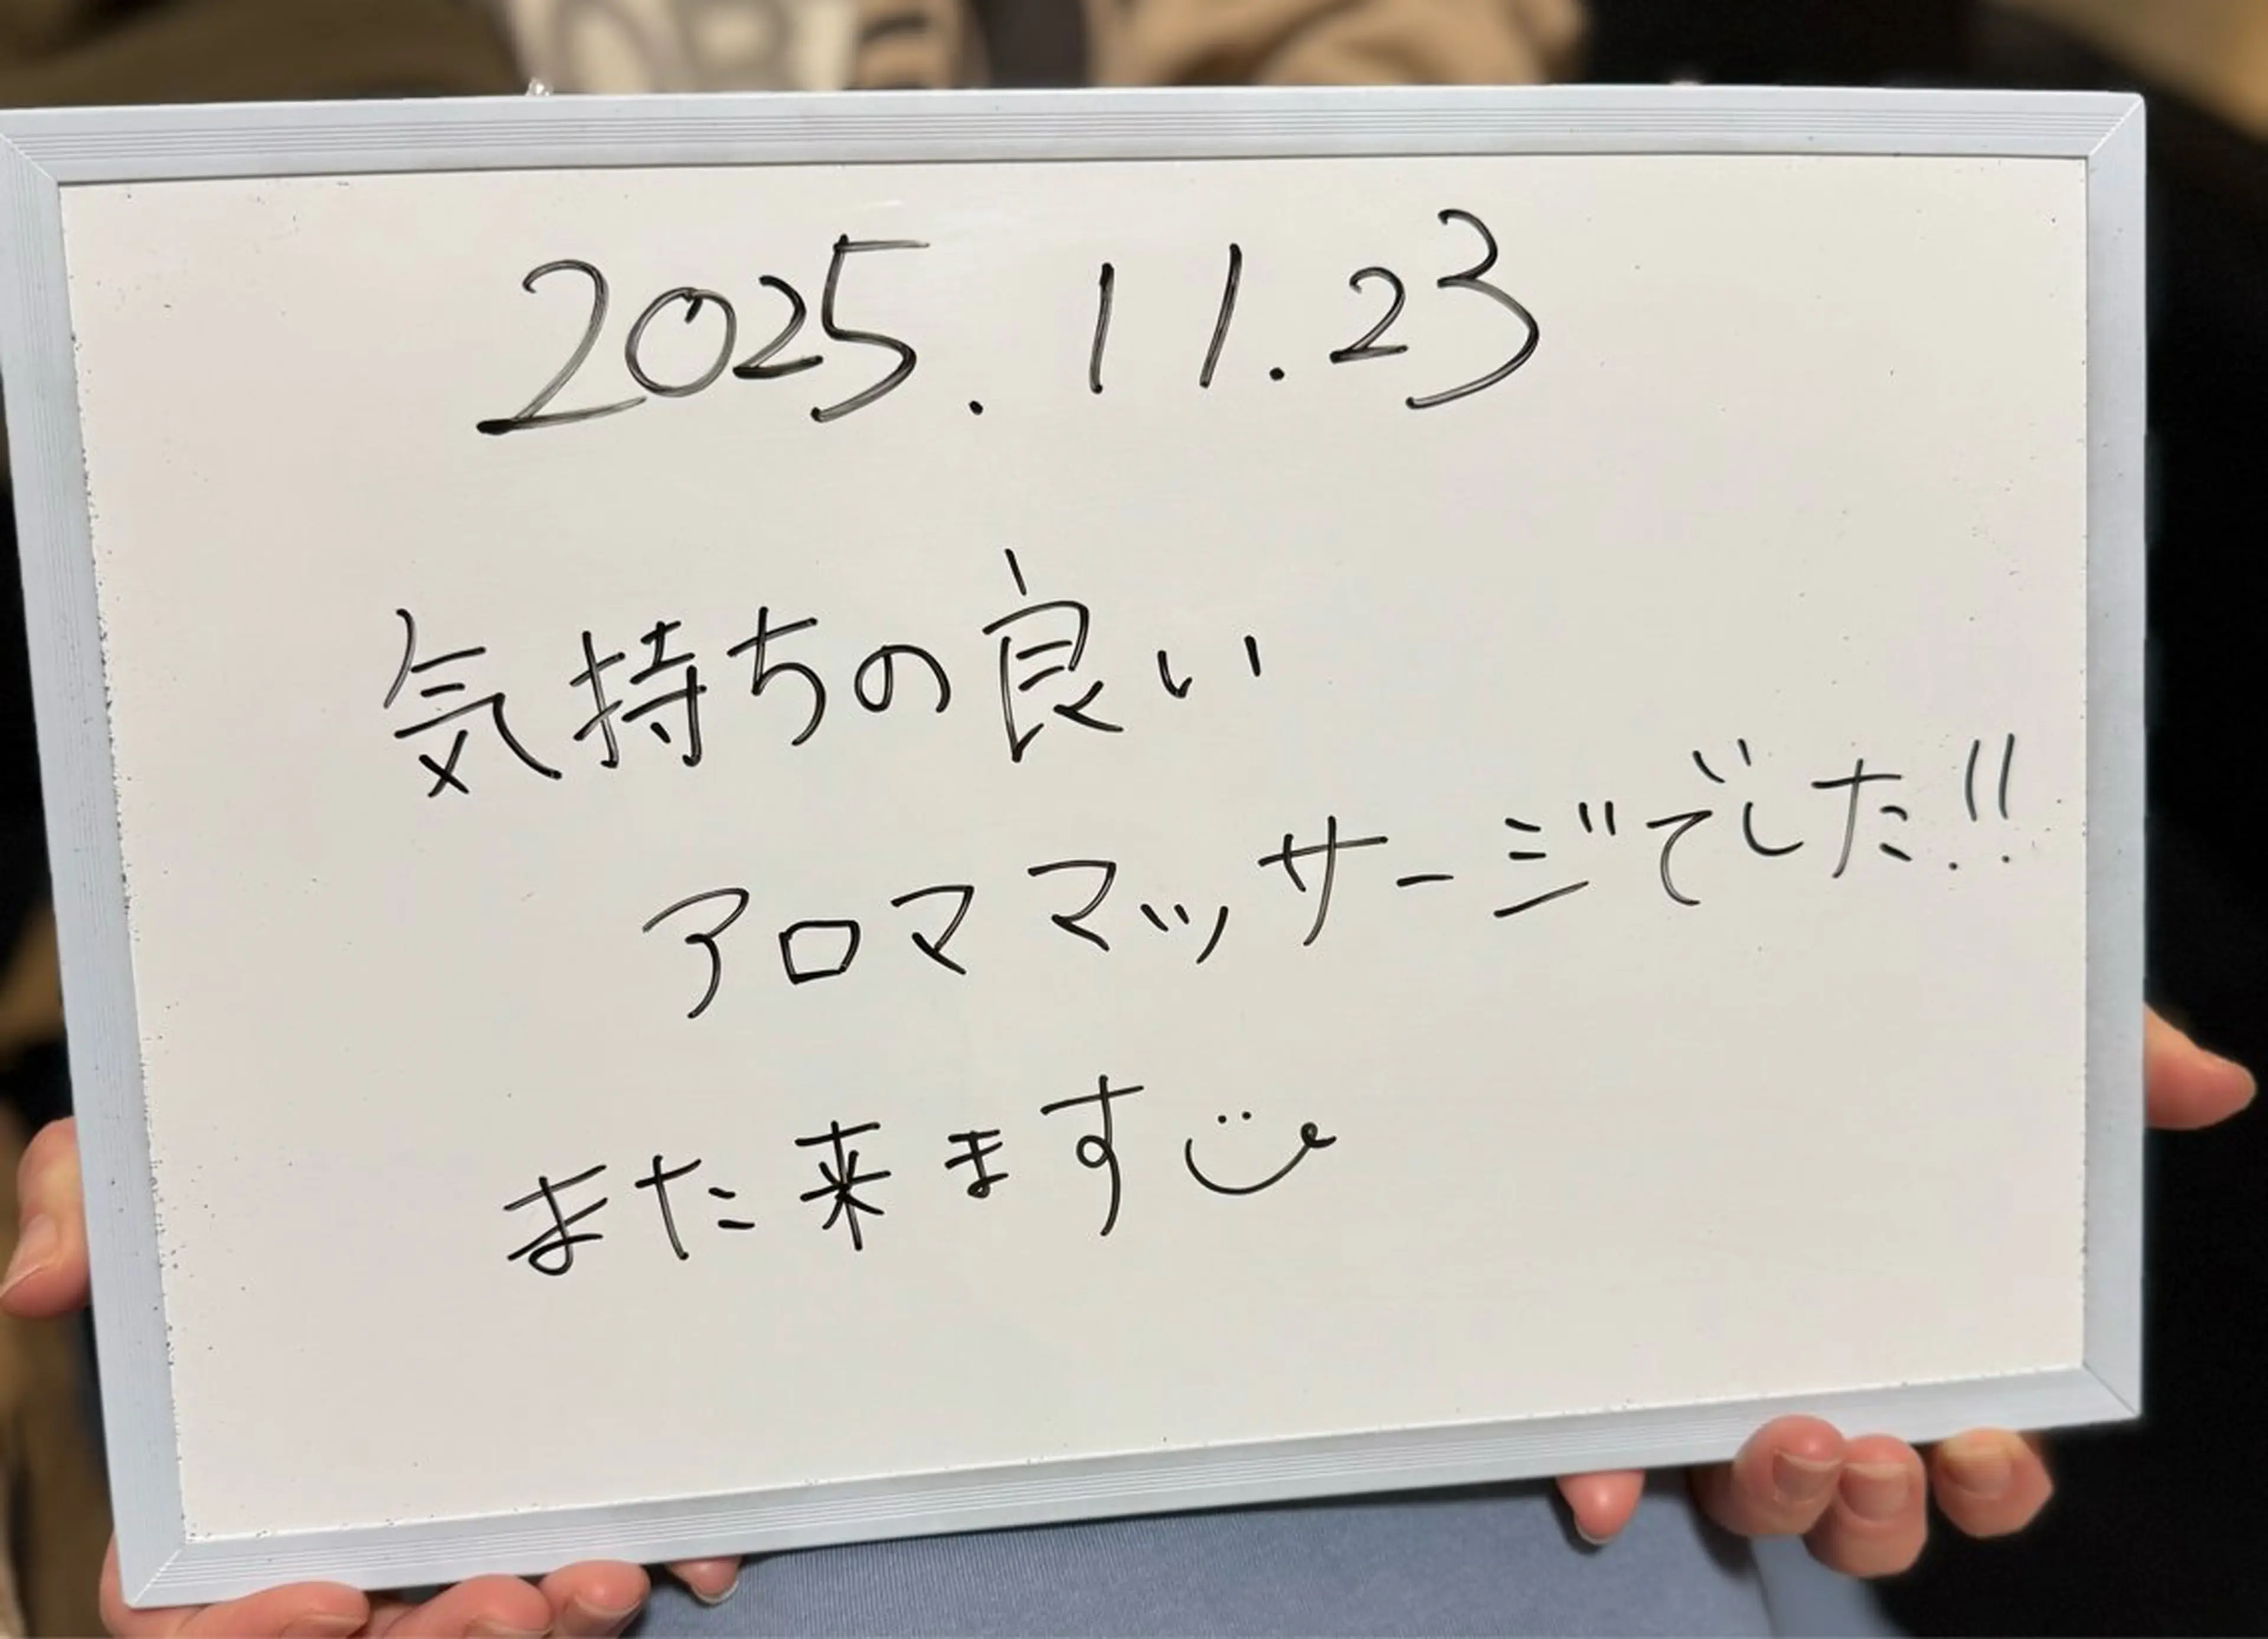 2025.11.23
気持ちの良い
アロママッサージでした!!
また来ます